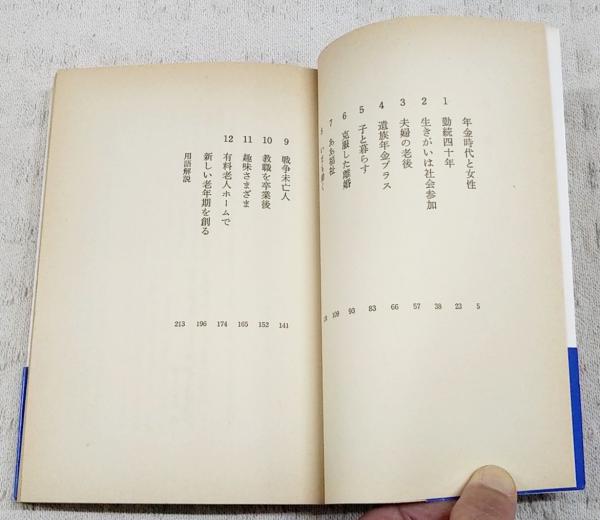 年金時代と女性 5
1 勤続四十年 23
2 生きがいは社会参加 38
3 夫婦の老後 57
4 遺族年金プラス 66
5 子と暮らす 83
6 克服した離婚 93
7 ああ福祉 109
9 戦争未亡人 141
10 教職を卒業後 152
11 趣味さまざま 165
12 有料老人ホームで 174
新しい老年期を創る 196
用語解説 213